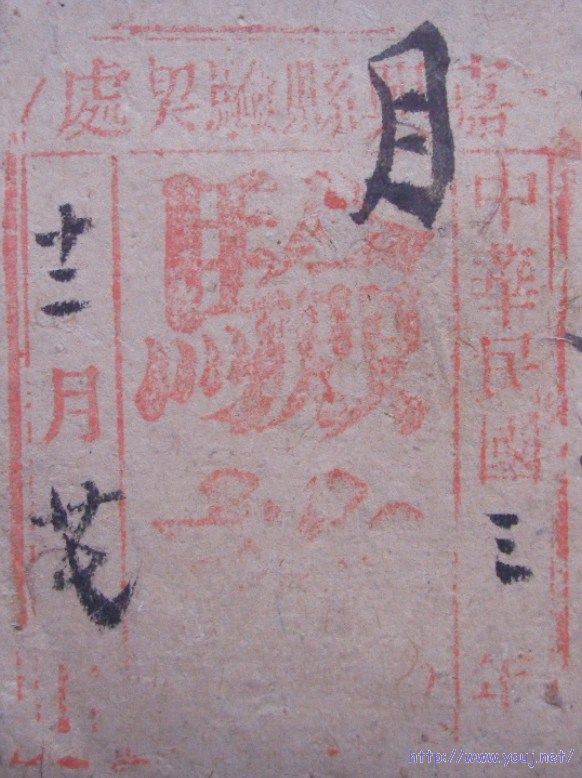 嘉興縣驗契處
目
中華民國三年
驗
十二月
http://www.youj.net/